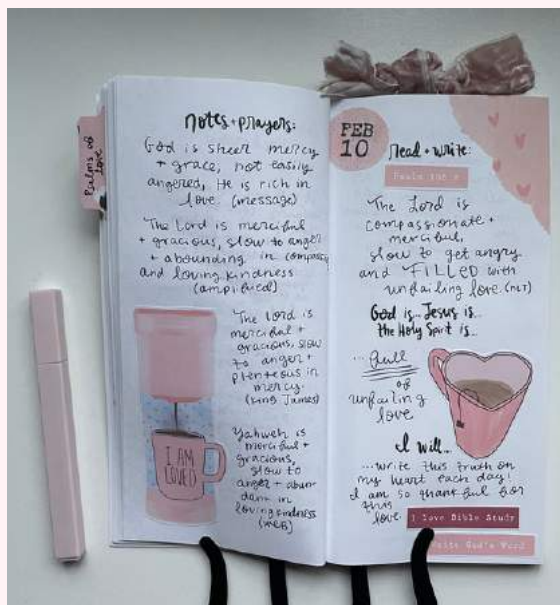 Psalms of
Love
notes + prayers:
God is sheer mercy
+ grace, not easily
angered, He is rich in
love. (message)
The Lord is merciful
+ gracious, slow to anger
+ abounding in compassion
and loving kindness
(amplified)
The Lord is
merciful +
gracious, slow
to anger +
plenteous in
mercy.
(King James)
I AM
LOVED
Yahweh is
merciful +
gracious,
slow to
anger + abun-
dant in
loving kindness
(WEB)
FEB
10
read + write:
Psalm 103 8
The Lord is
compassionate +
merciful,
slow to get angry
and FILLED with
unfailing love. (NLT)
God is... Jesus is...
the Holy Spirit is...
... full
of
unfailing
love
I will...
...write this truth on
my heart each day!
I am so thankful for
this
love.
I love Bible Study
Write God's Word